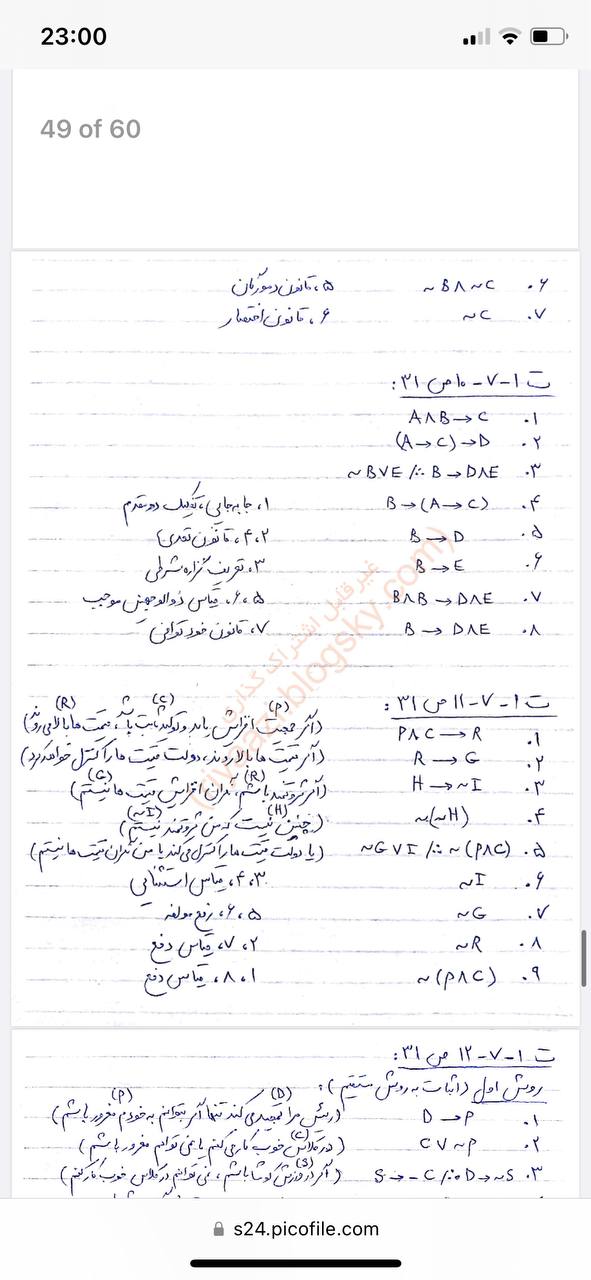 23:00
49 of 60
۶. ~B∧~C ۵، قانون دمورگان
۷. ~C ۶، قانون اختصار
ت ۱-۷-۱۰ ص ۳۱:
۱. A∧B→C
۲. (A→C)→D
۳. ~B∨E /∴ B→D∧E
۴. B→(A→C) ۱، جابه‌جایی، تفکیک دو مقدم
۵. B→D ۲، ۴، قانون تعدی
۶. B→E ۳، تعریف گزاره شرطی
۷. B∧B→D∧E ۵، ۶، قیاس ذوالوجهین موجب
۸. B→D∧E ۷، قانون خودتوانی
ت ۱-۷-۱۱ ص ۳۱:
(P) (C) (R)
۱. P∧C→R (اگر جمعیت افزایش یابد و تولید ثابت باشد، قیمت‌ها بالا می‌روند)
۲. R→G (اگر قیمت‌ها بالا روند، دولت قیمت‌ها را کنترل خواهد کرد)
(G)
۳. H→~I (اگر ثروتمند باشم، نگران افزایش قیمت‌ها نیستم)
(H) (~I)
۴. ~(~H) (چنین نیست که من ثروتمند نیستم)
۵. ~G∨I /∴ ~(P∧C) (یا دولت قیمت‌ها را کنترل می‌کند یا من نگران قیمت‌ها نیستم)
۶. ~I ۳، ۴، قیاس استثنایی
۷. ~G ۵، ۶، رفع مولفه
۸. ~R ۲، ۷، قیاس دفع
۹. ~(P∧C) ۱، ۸، قیاس دفع
ت ۱-۷-۱۲ ص ۳۱:
روش اول (اثبات به روش مستقیم):
(D) (P)
۱. D→P (رئیس مرا تمجید می‌کند تنها اگر بتوانم به خودم مغرور باشم)
(C)
۲. C∨~P (در کلاس خوب کار می‌کنم یا نمی‌توانم مغرور باشم)
(S)
۳. S→~C /∴ D→~S (اگر در ورزش کوشا باشم، نمی‌توانم در کلاس خوب کار کنم)
غیر قابل اشتراک گذاری
s24.picofile.com